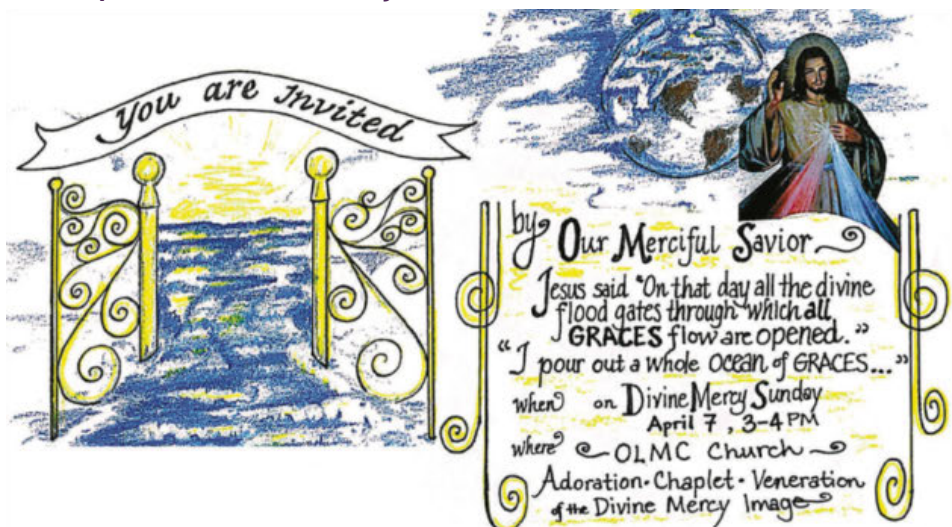 You are Invited
by Our Merciful Savior
Jesus said "On that day all the divine
flood gates through which all
GRACES flow are opened."
"I pour out a whole OCEAN of GRACES..."
when on Divine Mercy Sunday
April 7, 3-4 PM
where OLMC Church
Adoration · Chaplet · Veneration
of the Divine Mercy Image